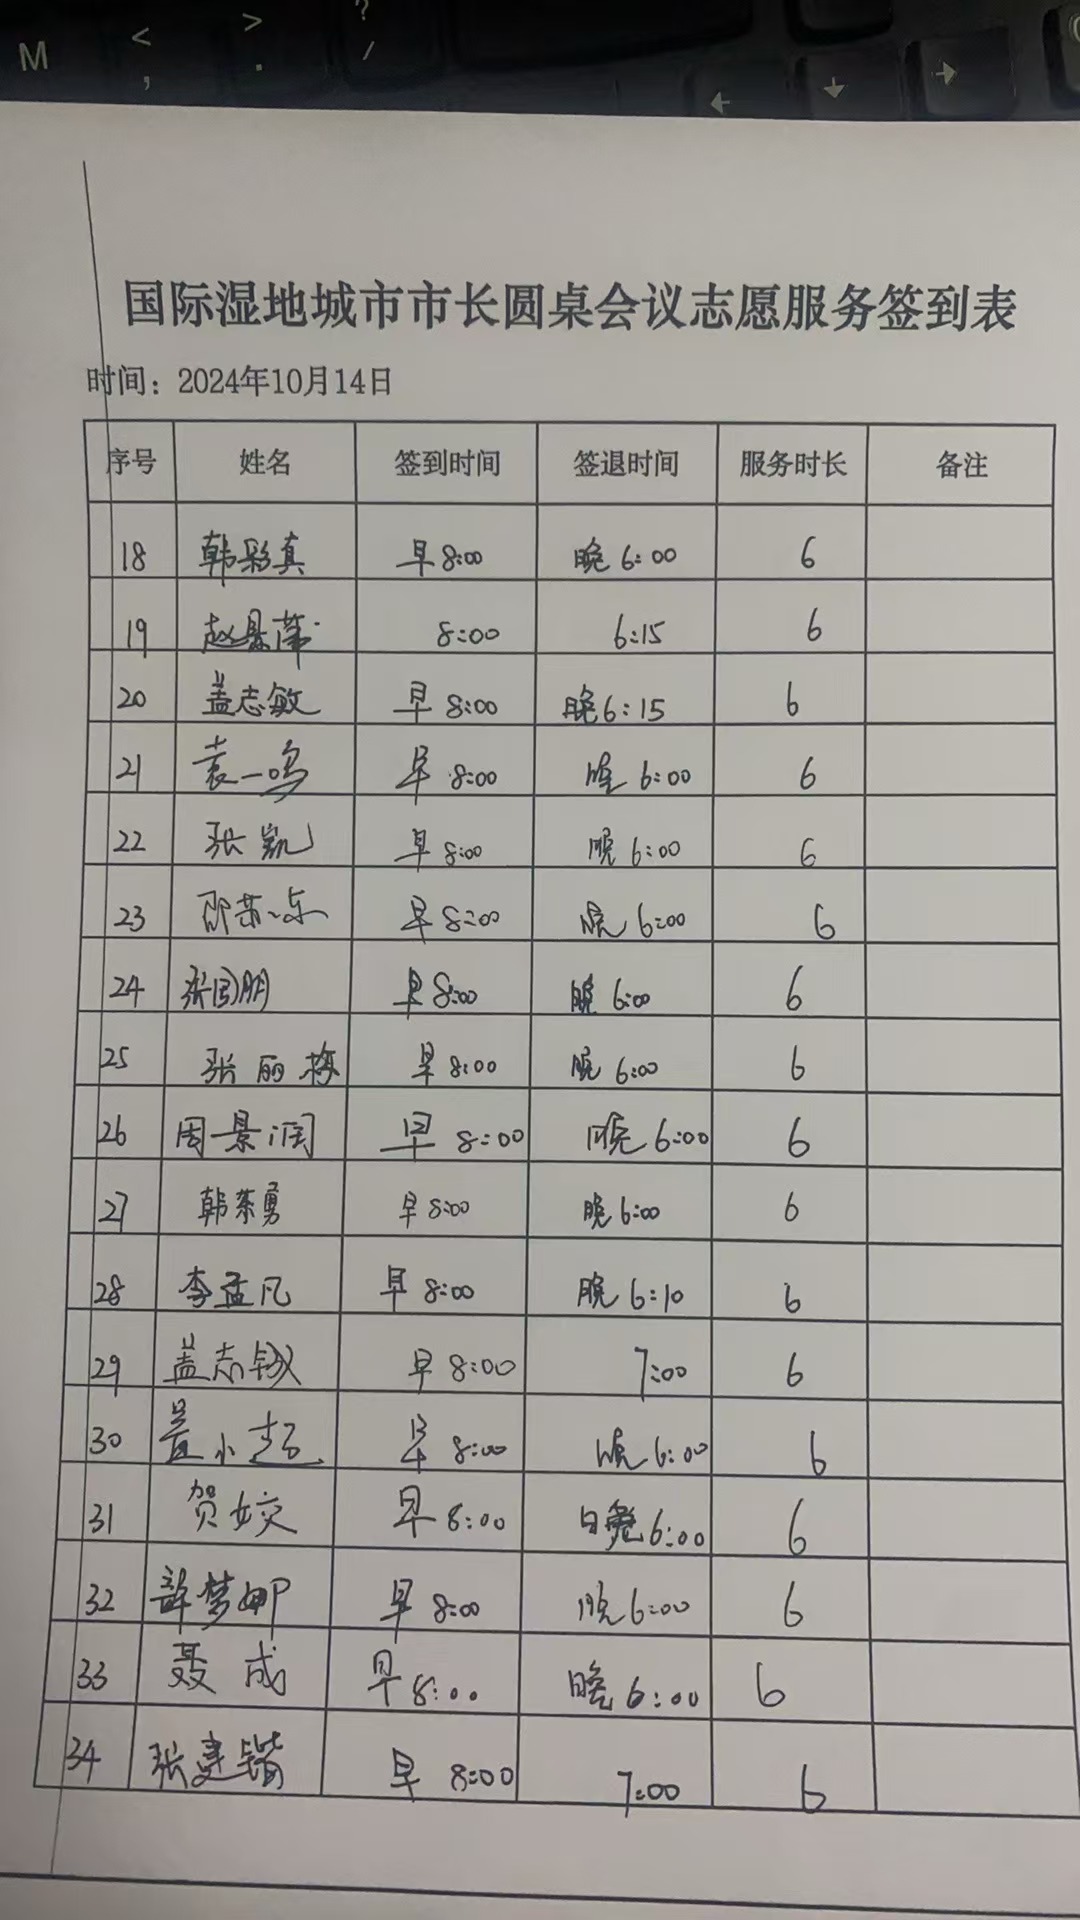 M < , > . ? /
← ↓ →
国际湿地城市市长圆桌会议志愿服务签到表
时间：2024年10月14日
序号 姓名 签到时间 签退时间 服务时长 备注
18 韩彩真 早8:00 晚6:00 6
19 赵景 8:00 6:15 6
20 盖志敏 早8:00 晚6:15 6
21 袁一鸣 早8:00 晚6:00 6
22 张凯 早8:00 晚6:00 6
23 早8:00 晚6:00 6
24 张国朋 早8:00 晚6:00 6
25 张丽梅 早8:00 晚6:00 6
26 周景润 早8:00 晚6:00 6
27 韩荣勇 早8:00 晚6:00 6
28 李孟凡 早8:00 晚6:10 6
29 盖志 早8:00 7:00 6
30 盖小超 早8:00 晚6:00 6
31 贺姣 早8:00 晚6:00 6
32 许梦娜 早8:00 晚6:00 6
33 聂成 早8:00 晚6:00 6
34 张建锴 早8:00 7:00 6